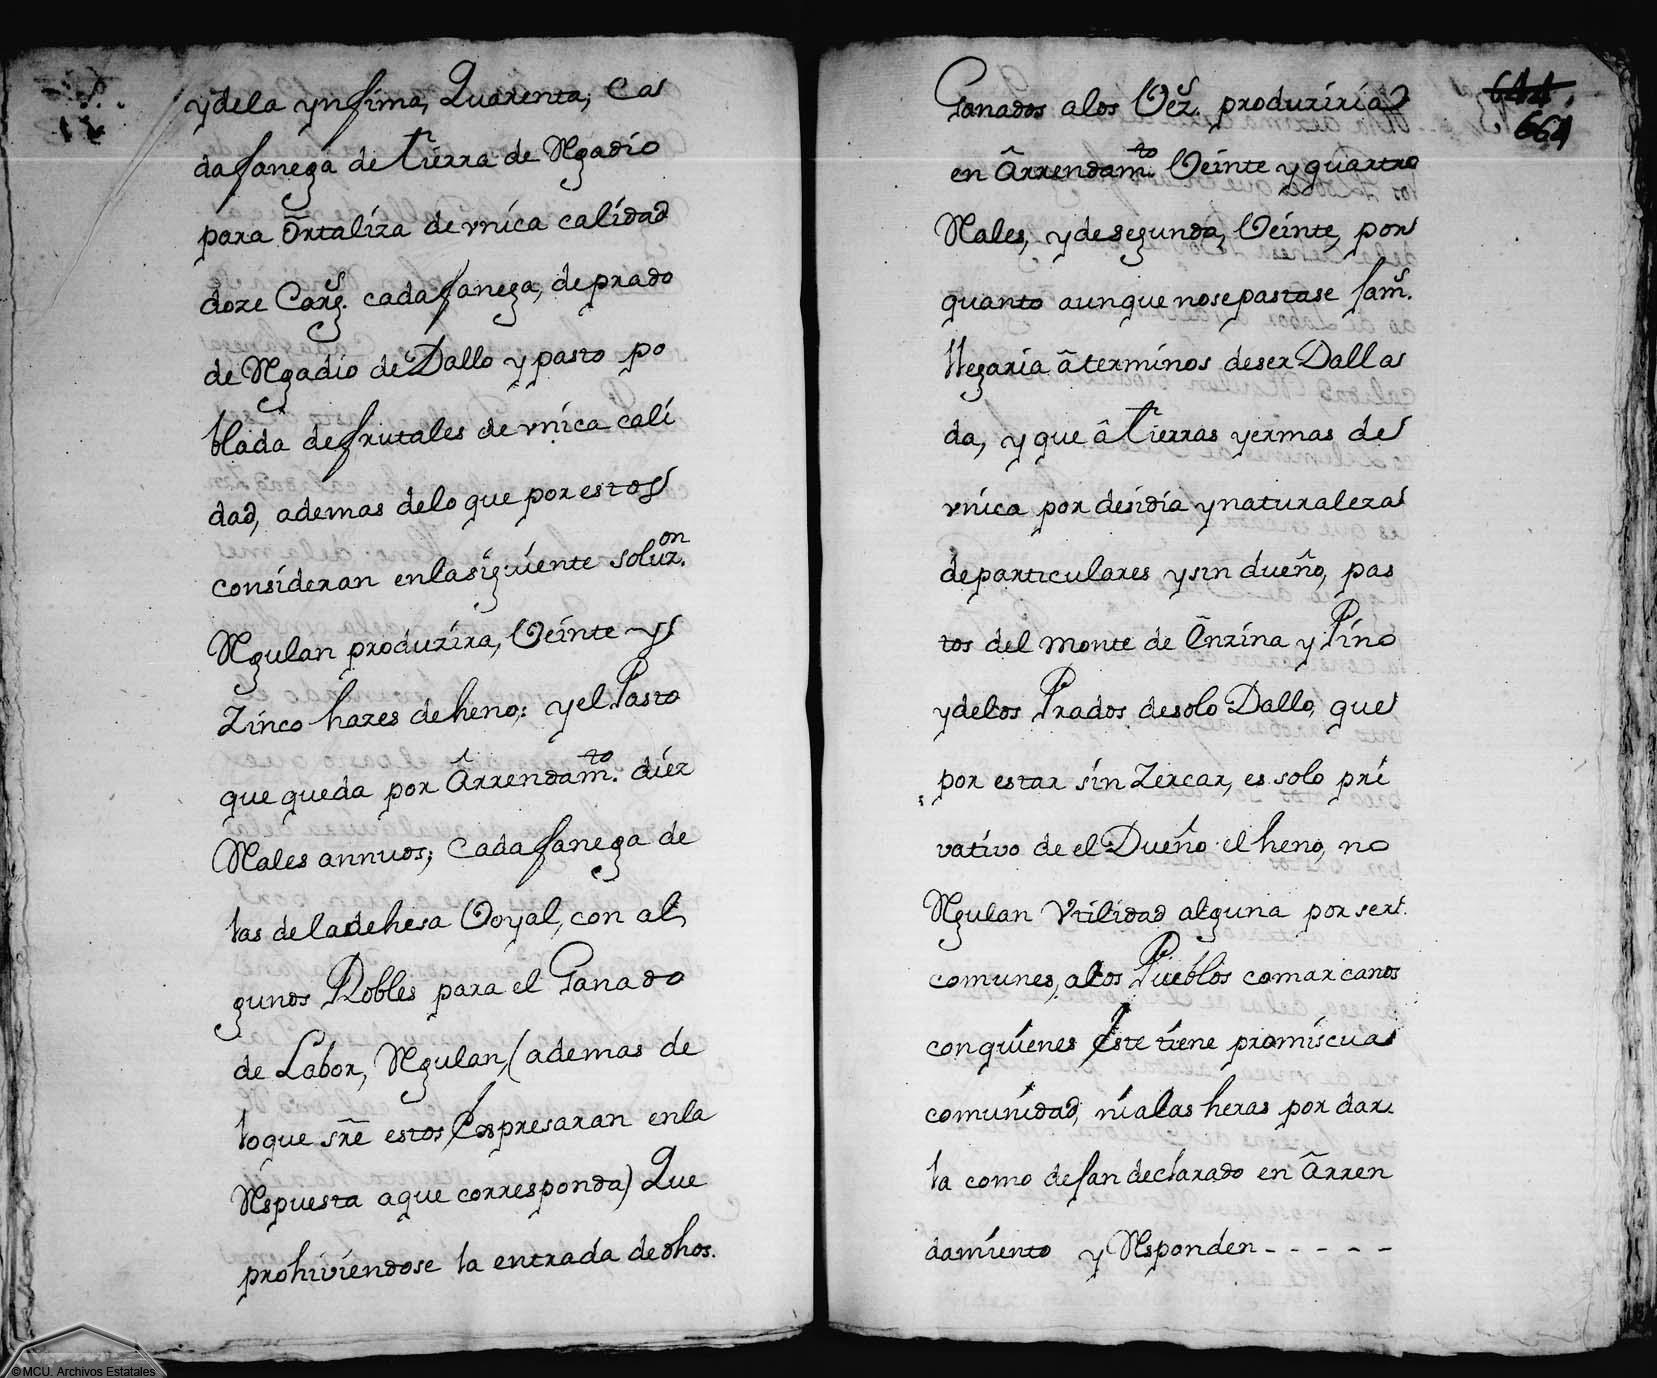 y de la ynfima, Quarenta; Ca
da fanega de tierra de Rgadio
para Ôrtaliza de vnica calidad
doze Carg.s cada fanega, de prado
de Rgadio de Dallo y pasto po
blada de frutales de vnica cali
dad, ademas de lo que por estos
consideran en la siguiente Soluz.on
Rgulan produzira, Veinte y
Zinco hazes de heno; y el Pasto
que queda por Ârrendam.to diez
Rales annuos; Cada fanega de
las de la dehesa Voyal, con al
gunos Robles para el Ganado
de Labor, Rgulan, (ademas de
lo que sre estos Espresaran en la
Rspuesta a que corresponda) Que
prohiviendose la entrada de dhos.
644.
664
Ganados a los Vez.s produziria
en Ârrendam.to Veinte y quattro
Rales, y de segunda, Veinte, por
quanto aunque no se pastase jam.s
llegaria â terminos de ser Dalla
da, y que â tierras yermas de
vnica por desidia y naturaleza
de particulares y sin dueño, pas
tos del monte de Ênzina y Pino
y de los Prados de solo Dallo, que
por estar sin Zercar, es solo pri
vativo de el Dueño el heno, no
Rgulan Vtilidad alguna por ser
comunes, a los Pueblos comarcanos
con quienes Este tiene promiscua
comunidad, ni a las heras por dar
la como dejan declarado en Ârren
damiento y Rsponden - - - - -
©MCU. Archivos Estatales